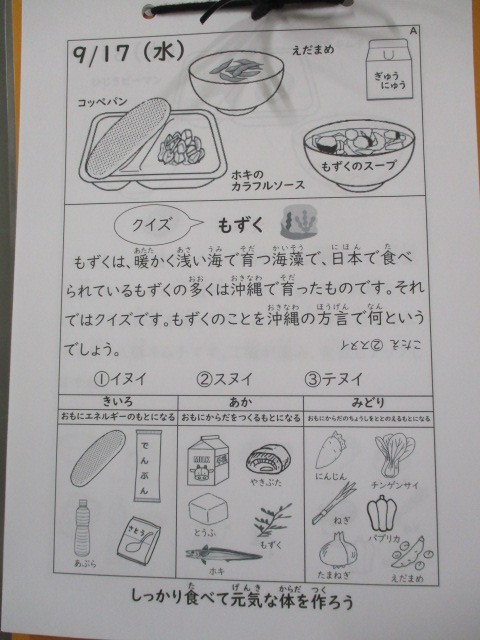 A
9/17（水）
えだまめ
ぎゅうにゅう
コッペパン
ホキの
カラフルソース
もずくのスープ
クイズ　もずく
もずくは、暖かく浅い海で育つ海藻で、日本で食べ
られているもずくの多くは沖縄で育ったものです。それ
ではクイズです。もずくのことを沖縄の方言で何という
でしょう。
こたえ ②スヌイ
①イヌイ　②スヌイ　③テヌイ
きいろ　あか　みどり
おもにエネルギーのもとになる　おもにからだをつくるもとになる　おもにからだのちょうしをととのえるもとになる
でんぷん
MILK
やきぶた
にんじん
チンゲンサイ
さとう
とうふ
もずく
ねぎ
パプリカ
あぶら
ホキ
たまねぎ
えだまめ
しっかり食べて元気な体を作ろう